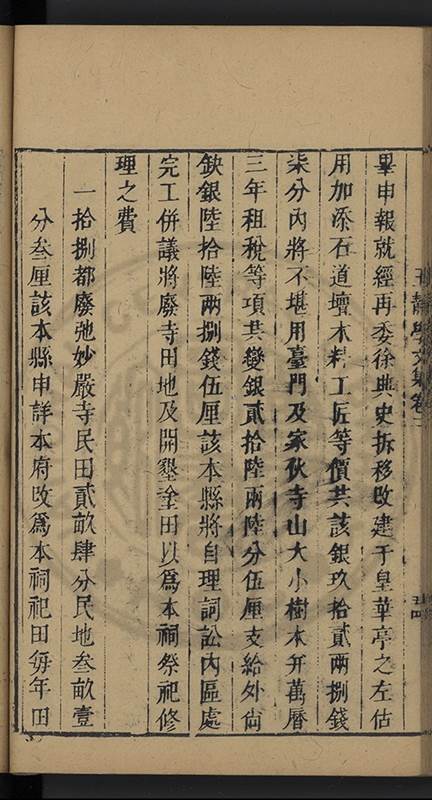 王靜學文集卷二
畢申報就經再委徐典史拆移改建于皇華亭之左估
用加添石道壇木料工匠等價共該銀玖拾貳兩捌錢
柒分內將不堪用臺門及家伙寺山大小樹木并萬曆
三年租稅等項共變銀貳拾陸兩陸分伍厘支給外尙
缺銀陸拾陸兩捌錢伍厘該本縣將自理詞訟內區處
完工併議將廢寺田地及開墾塗田以爲本祠祭祀修
理之費
一拾捌都廢弛妙嚴寺民田貳畝肆分民地叁畝壹
分叁厘該本縣申詳本府改爲本祠祀田每年田